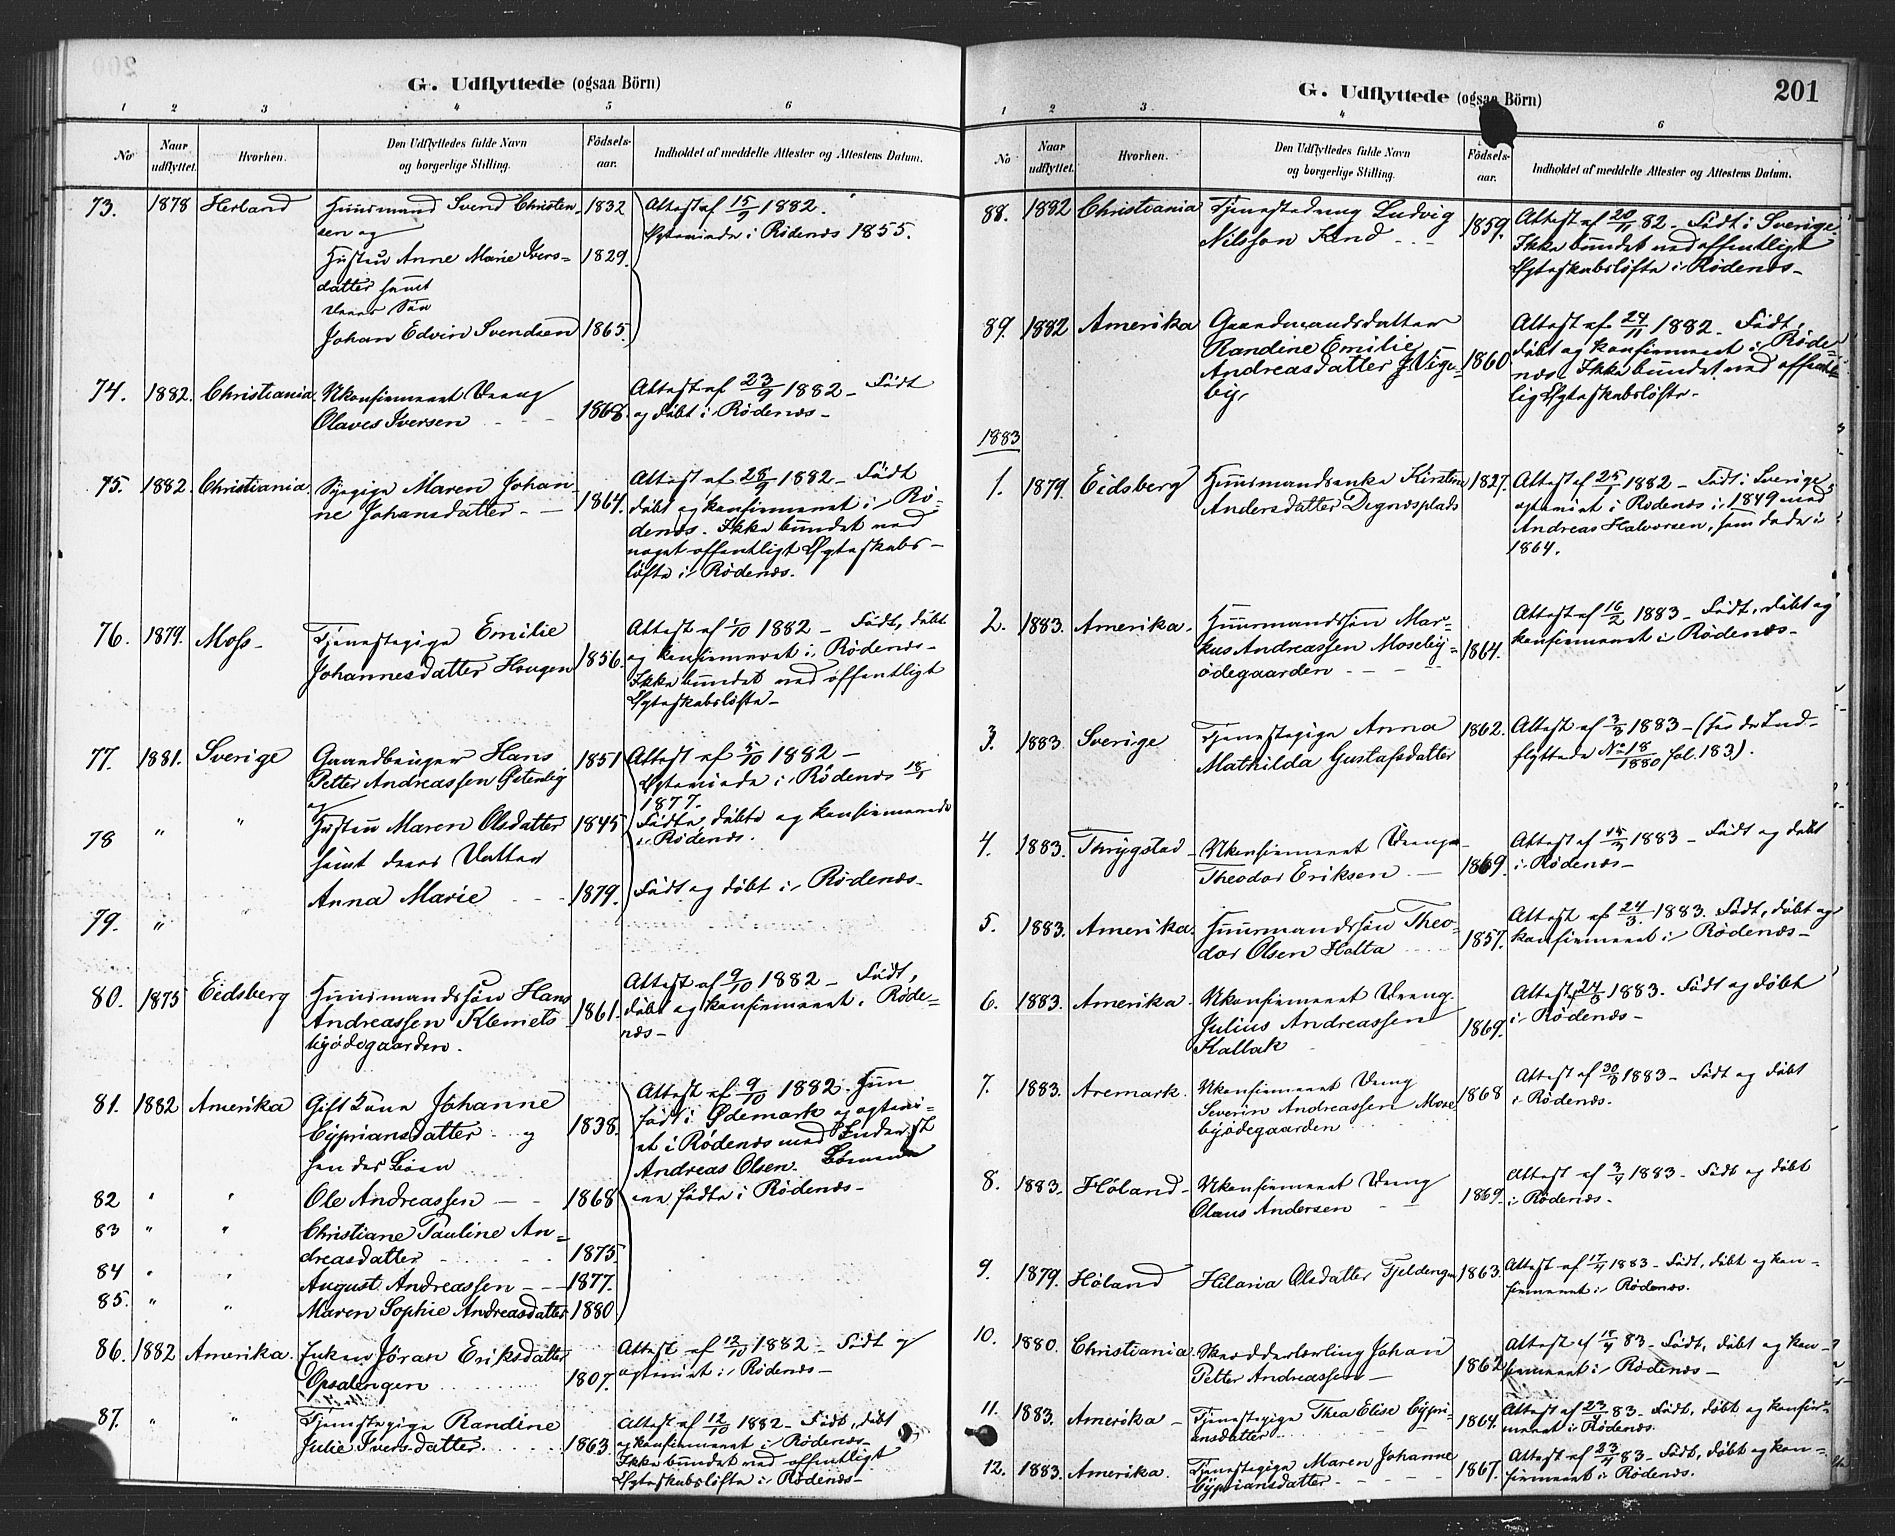 G. Udflyttede (ogsaa Börn)
1 2 3 4 5 6
No Naar udflyttet. Hvorhen. Den Udflyttedes fulde Navn og borgerlige Stilling. Födsels-aar. Indholdet af meddelte Attester og Attestens Datum.
73. 1878 Herland Huusmand Svend Christen- 1832 Attest af 15/9 1882.
sen og Ægteviede i Rødenæs 1855.
Hustru Anne Marie Ivers- 1829.
datter samt
deres Søn
Johan Edvin Svendsen 1865.
74. 1882. Christiania. Ukonfirmeret Dreng Attest af 23/9 1882 - Født
Olaves Iversen 1868. og døbt i Rødenæs -
75. 1882. Christiania. Sypige Maren Johan- Attest af 28/9 1882 - Født
ne Johansdatter - 1864. døbt og konfirmeret i Rø-
denæs. Ikke bundet ved
noget offentligt Ægteskabs-
løfte i Rødenæs.
76. 1879. Moss - Tjenestepige Emilie Attest af /10 1882 - Født, døbt
Johannesdatter Hougen 1856. og konfirmeret i Rødenæs -
Ikke bundet ved offentligt
Ægteskabsløfte -
77. 1881. Sverige Gaardbruger Hans 1851 Attest af 5/10 1882 -
Petter Andreassen Østenby Ægteviede i Rødenæs
og 1877.
78 " " Hustru Maren Olsdatter 1845 Fødte, døbte og konfirmerede
i Rødenæs.
samt deres Datter
Anna Marie 1879. Født og døbt i Rødenæs -
79. " "
80. 1875 Eidsberg Huusmandssøn Hans Attest af 9/10 1882 - Født,
Andreassen Klemets- 1861. døbt og konfirmeret i Røde-
byødegaarden. næs -
81. 1882 Amerika Gift Kone Johanne Attest af 9/10 1882. Hun
Cypriansdatter og 1838. født i Ødemark og ægtevi-
hendes Børn et i Rødenæs med Inderst
Andreas Olsen. Børnene
82 " " Ole Andreassen - - 1868 ere fødte i Rødenæs -
83 " " Christiane Pauline An-
dreasdatter 1875
84 " " August Andreassen - - 1877.
85. " " Maren Sophie Andreasdatter 1880.
86. 1882 Amerika. Enken Jöran Eriksdatter Attest af 12/10 1882 - Født og
Opsalengen 1807. ægteviet i Rødenæs -
87. " " Tjenestepige Randine Attest af 12/10 1882 - Født, døbt
Julie Iversdatter. 1863. og konfirmeret i Rødenæs -
Ikke bundet ved offentligt
Ægteskabsløfte i Rødenæs -
G. Udflyttede (ogsaa Börn) 201
1 2 3 4 6
No Naar udflyttet. Hvorhen. Den Udflyttedes fulde Navn og borgerlige Stilling. Födsels-aar. Indholdet af meddelte Attester og Attestens Datum.
88. 1882 Christiania Tjenestedreng Ludvig 1859. Attest af 20/11 82. Født i Sverige.
Nilsson Kind - - Ikke bundet ved offentligt
Ægteskabsløfte i Rødenæs -
89. 1882 Amerika Gaardmandsdatter Attest af 24/11 1882 - Født,
Randine Emilie døbt og konfirmeret i Røde-
Andreasdatter Vige- 1860 næs. Ikke bundet ved offent-
by, lig Ægteskabsløfte -
1883
1. 1879. Eidsberg Huusmandsenke Kirsten 1827. Attest af 25/1 1882 - Født i Sverige,
Andersdatter Degnæsplads ægteviet i Rødenæs i 1849 med
Andreas Halvorsen, som døde i
1864.
2. 1883. Amerika. Huusmandssøn Mar- Attest af 16/2 1883 - Født, døbt og
kus Andreassen Moseby- 1864. konfirmeret i Rødenæs -
ødegaarden - - -
3. 1883. Sverige Tjenestepige Anna 1862. Attest af 3/3 1883 - (see de Ind-
Mathilda Gustafsdatter flyttede No 18/1880 fol. 183).
4. 1883. Thrygstad - Ukonfirmeret Dreng Attest af 15/3 1883 - Født og døbt
Theodor Eriksen - 1869. i Rødenæs -
5. 1883. Amerika. Huusmandssøn Theo- Attest af 24/3. 1883. Født, døbt og
dor Olsen Holta 1857. konfirmeret i Rødenæs -
6. 1883. Amerika. Ukonfirmeret Dreng Attest 24/3 1883. Født og døbt
Julius Andreassen 1869. i Rødenæs -
Kallak
7. 1883. Aremark. Ukonfirmeret Dreng 1868 Attest af 30/3 1883 - Født og døbt
Severin Andreassen Mose- i Rødenæs.
byødegaarden
8. 1883. Höland - Ukonfirmeret Dreng 1869. Attest af 3/4 1883 - Født og døbt
Olaus Andersen i Rødenæs -
9. 1879. Höland Hilaria Olsdatter Fjeldengen 1863. Attest af 17/4 1883 - Født, døbt og kon-
firmeret i Rødenæs.
10. 1880. Christiania. Skrædderlærling Johan Attest af 18/4 83 - Født, døbt og kon-
Petter Andreassen - 1862 firmeret i Rødenæs -
11. 1883. Amerika - Tjenestepige Thea Elise Cypri- 1864. Attest af 23/4 83 - Født, døbt og konfir-
ansdatter meret i Rødenæs.
12. 1883. Amerika. Tjenestepige Maren Johanne 1867. Attest af 23/4 83 - Født, døbt og kon-
Cypriansdatter - firmeret i Rødenæs.